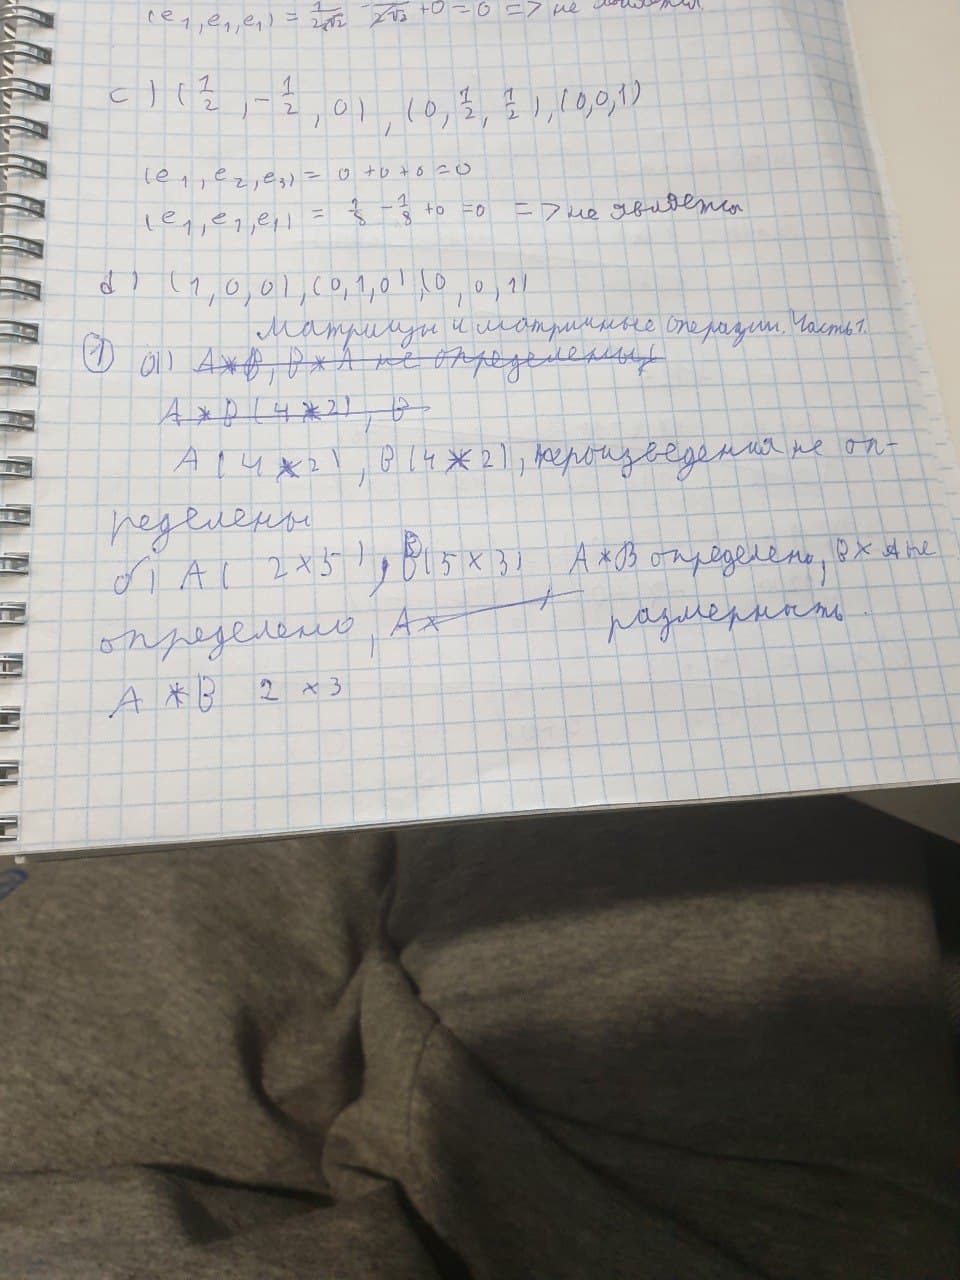 (e₁, e₁, e₁) = 1/2√2 - 1/2√2 + 0 = 0 => не является
c) (1/2, -1/2, 0), (0, 1/2, 1/2), (0,0,1)
(e₁, e₂, e₃) = 0 + 0 + 0 = 0
(e₁, e₁, e₁) = 1/8 - 1/8 + 0 = 0 => не является
d) (1,0,0), (0,1,0), (0,0,1)
Матрицы и матричные операции. Часть 1.
① а) A*B, B*A не определены
A*B (4*2), B
A (4*2), B (4*2), произведения не оп-
ределены
б) A( 2×5), B(5×3) A*B определено, B×A не
определено, A* размерность.
A*B 2×3